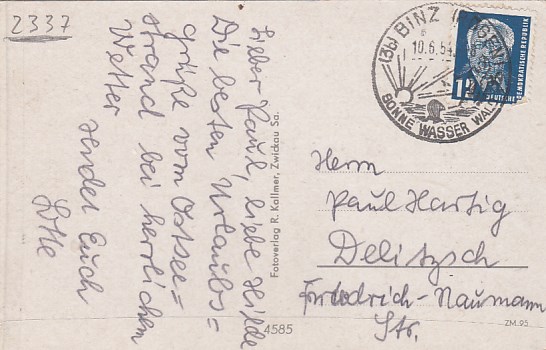 2337
Lieber Paul, liebe Hilde
Die besten Urlaubs=
grüße vom Ostsee=
strand bei herrlichem
Wetter
sendet Euch
Lotte
Fotoverlag R. Kallmer, Zwickau Sa.
4585
(3b) BINZ
10.6.54
SONNE WASSER
12
DEUTSCHE DEMOKRATISCHE REPUBLIK
Herrn
Paul Hartig
Delitzsch
Friedrich-Naumann
Str.
ZM 95